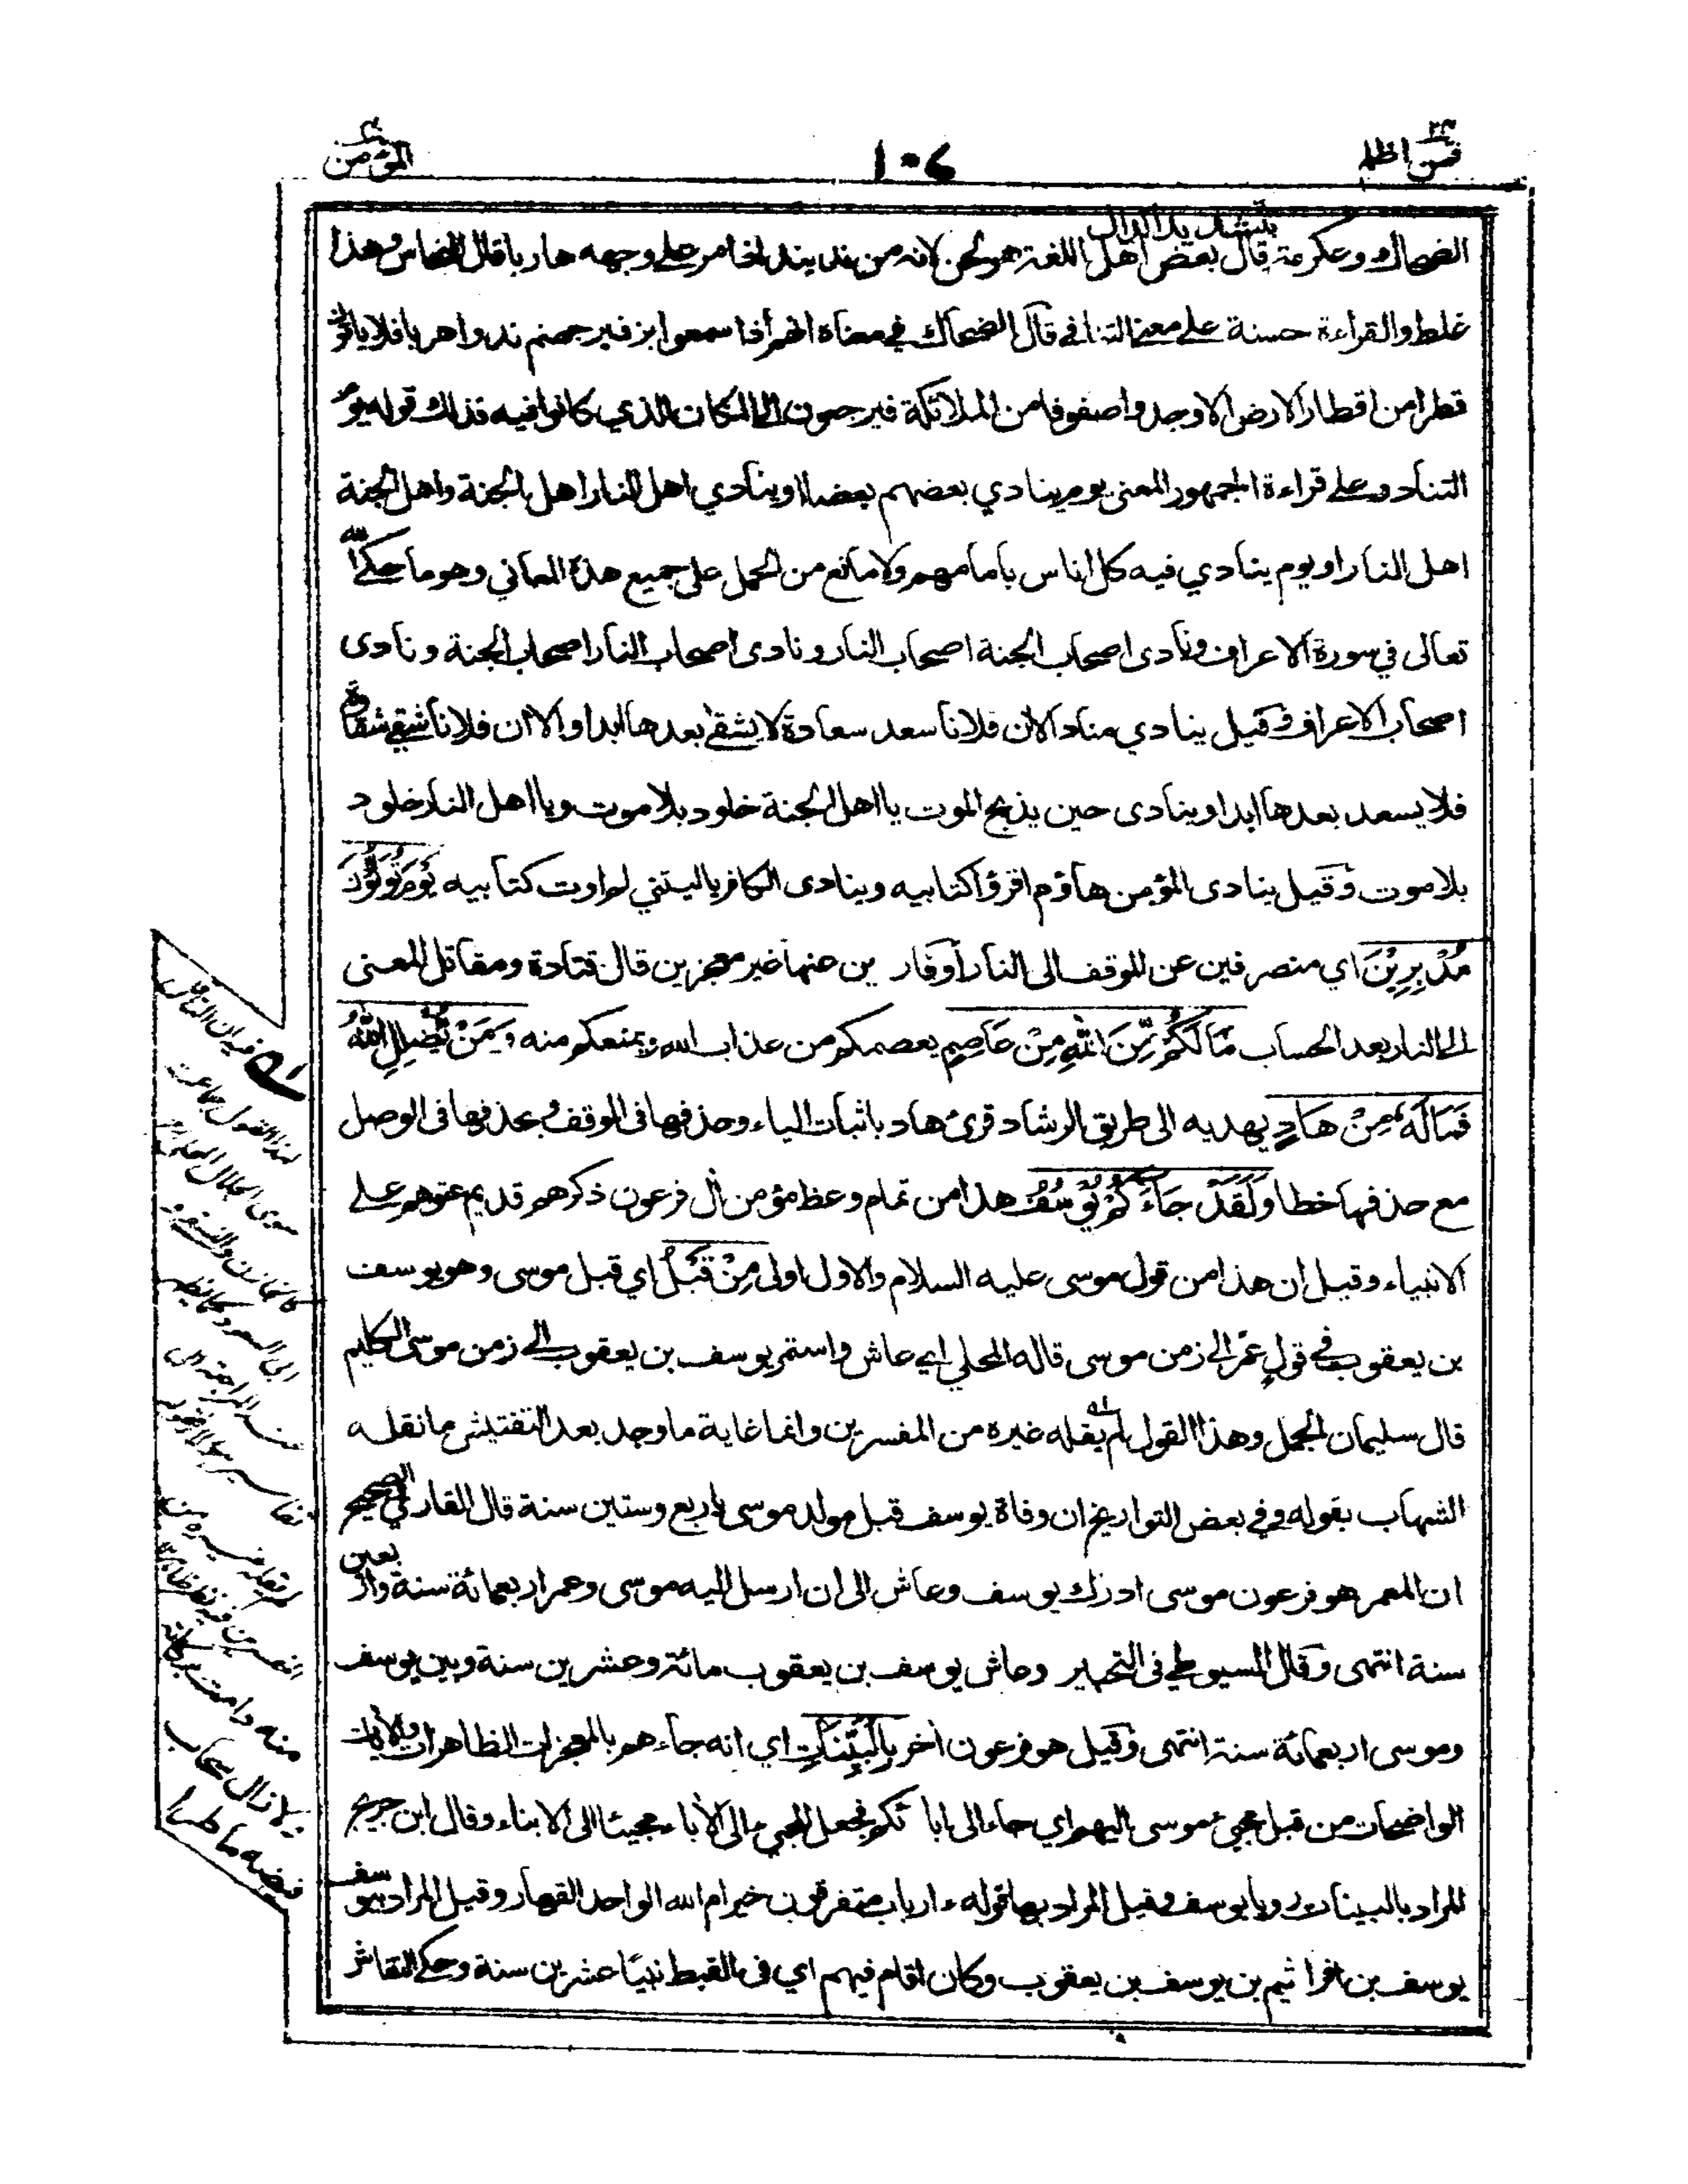 فمن اظلم ٢٤
١٠٤
المؤمن ٤٠
بتشديد الدال
الضحاك وعكرمة قال بعض اهل اللغة هو لحن لانه من ند يند اذا مر على وجهه هاربا قال النحاس وهذا
غلط والقراءة حسنة على معنى التنافي قال الضحاك في معناه انهم اذا سمعوا بزفير جهنم ندوا هربا فلا ياتون
قطرا من اقطار الارض الا وجدوا صفوفا من الملائكة فيرجعون الى المكان الذي كانوا فيه فذلك قوله يوم
التناد وعلى قراءة الجمهور المعنى يوم ينادي بعضهم بعضا او ينادي اهل النار اهل الجنة واهل الجنة
اهل النار او يوم ينادي فيه كل اناس بامامهم ولا مانع من الحمل على جميع هذه المعاني وهو ما حكى الله
تعالى في سورة الاعراف ونادى اصحاب الجنة اصحاب النار ونادى اصحاب النار اصحاب الجنة ونادى
اصحاب الاعراف وقيل ينادي مناد الا ان فلانا سعد سعادة لا يشقى بعدها ابدا والا ان فلانا شقي شقاوة
فلا يسعد بعدها ابدا وينادى حين يذبح الموت يا اهل الجنة خلود بلا موت ويا اهل النار خلود
بلا موت وقيل ينادى المؤمن هاؤم اقرؤا كتابيه وينادى الكافر يا ليتني لم اوت كتابيه يَوْمَ تُوَلُّوْنَ
مُدْبِرِيْنَ اي منصرفين عن الموقف الى النار او فارين عنها غير معجزين قال قتادة ومقاتل المعنى
الى النار بعد الحساب مَا لَكُمْ مِّنَ اللّٰهِ مِنْ عَاصِمٍ يعصمكم من عذاب الله ويمنعكم منه وَمَنْ يُّضْلِلِ اللّٰهُ
فَمَا لَهٗ مِنْ هَادٍ يهديه الى طريق الرشاد قرئ هاد باثبات الياء وحذفها فى الوقف وبحذفها فى الوصل
مع حذفها خطا وَلَقَدْ جَاءَكُمْ يُوْسُفُ هذا من تمام وعظ مؤمن آل فرعون ذكرهم قديم عتوهم على
الانبياء وقيل ان هذا من قول موسى عليه السلام والاول اولى مِنْ قَبْلُ اي قبل موسى وهو يوسف
بن يعقوب في قول عمر الى زمن موسى قاله المحلي اي عاش واستمر يوسف بن يعقوب الى زمن موسى الكليم
قال سليمان الجمل وهذا القول لم يقله غيره من المفسرين وانما غاية ما وجد بعد التفتيش ما نقله
الشهاب بقوله وفي بعض التواريخ ان وفاة يوسف قبل مولد موسى باربع وستين سنة قال القاري الصحيح
ان المعمر هو فرعون موسى ادرك يوسف وعاش الى ان ارسل اليه موسى وعمر اربعمائة سنة واربعين
سنة انتهى وقال السيوطي فى التحبير وعاش يوسف بن يعقوب مائة وعشرين سنة وبين يوسف
وموسى اربعمائة سنة انتهى وقيل هو فرعون آخر بِالْبَيِّنٰتِ اي انه جاءهم بالمعجزات الظاهرات والآيات
الواضحات من قبل مجئ موسى اليهم اي جاء الى ابائكم فجعل المجيء الى الآباء مجيئا الى الابناء وقال ابن جريج
المراد بالبينات رويا يوسف وقيل المراد بها قوله ءارباب متفرقون خير ام الله الواحد القهار وقيل المراد بيوسف
يوسف بن افراثيم بن يوسف بن يعقوب وكان اقام فيهم اي فى القبط نبيا عشرين سنة وحكى النقاش
فيه ان الناقل
لهذا القول جماعة
سوى الجلال المحلي
كالخازن والنسفي و
ابي السعود
منه دامت بركاته
لا زال سحاب
فيضه ماطرا